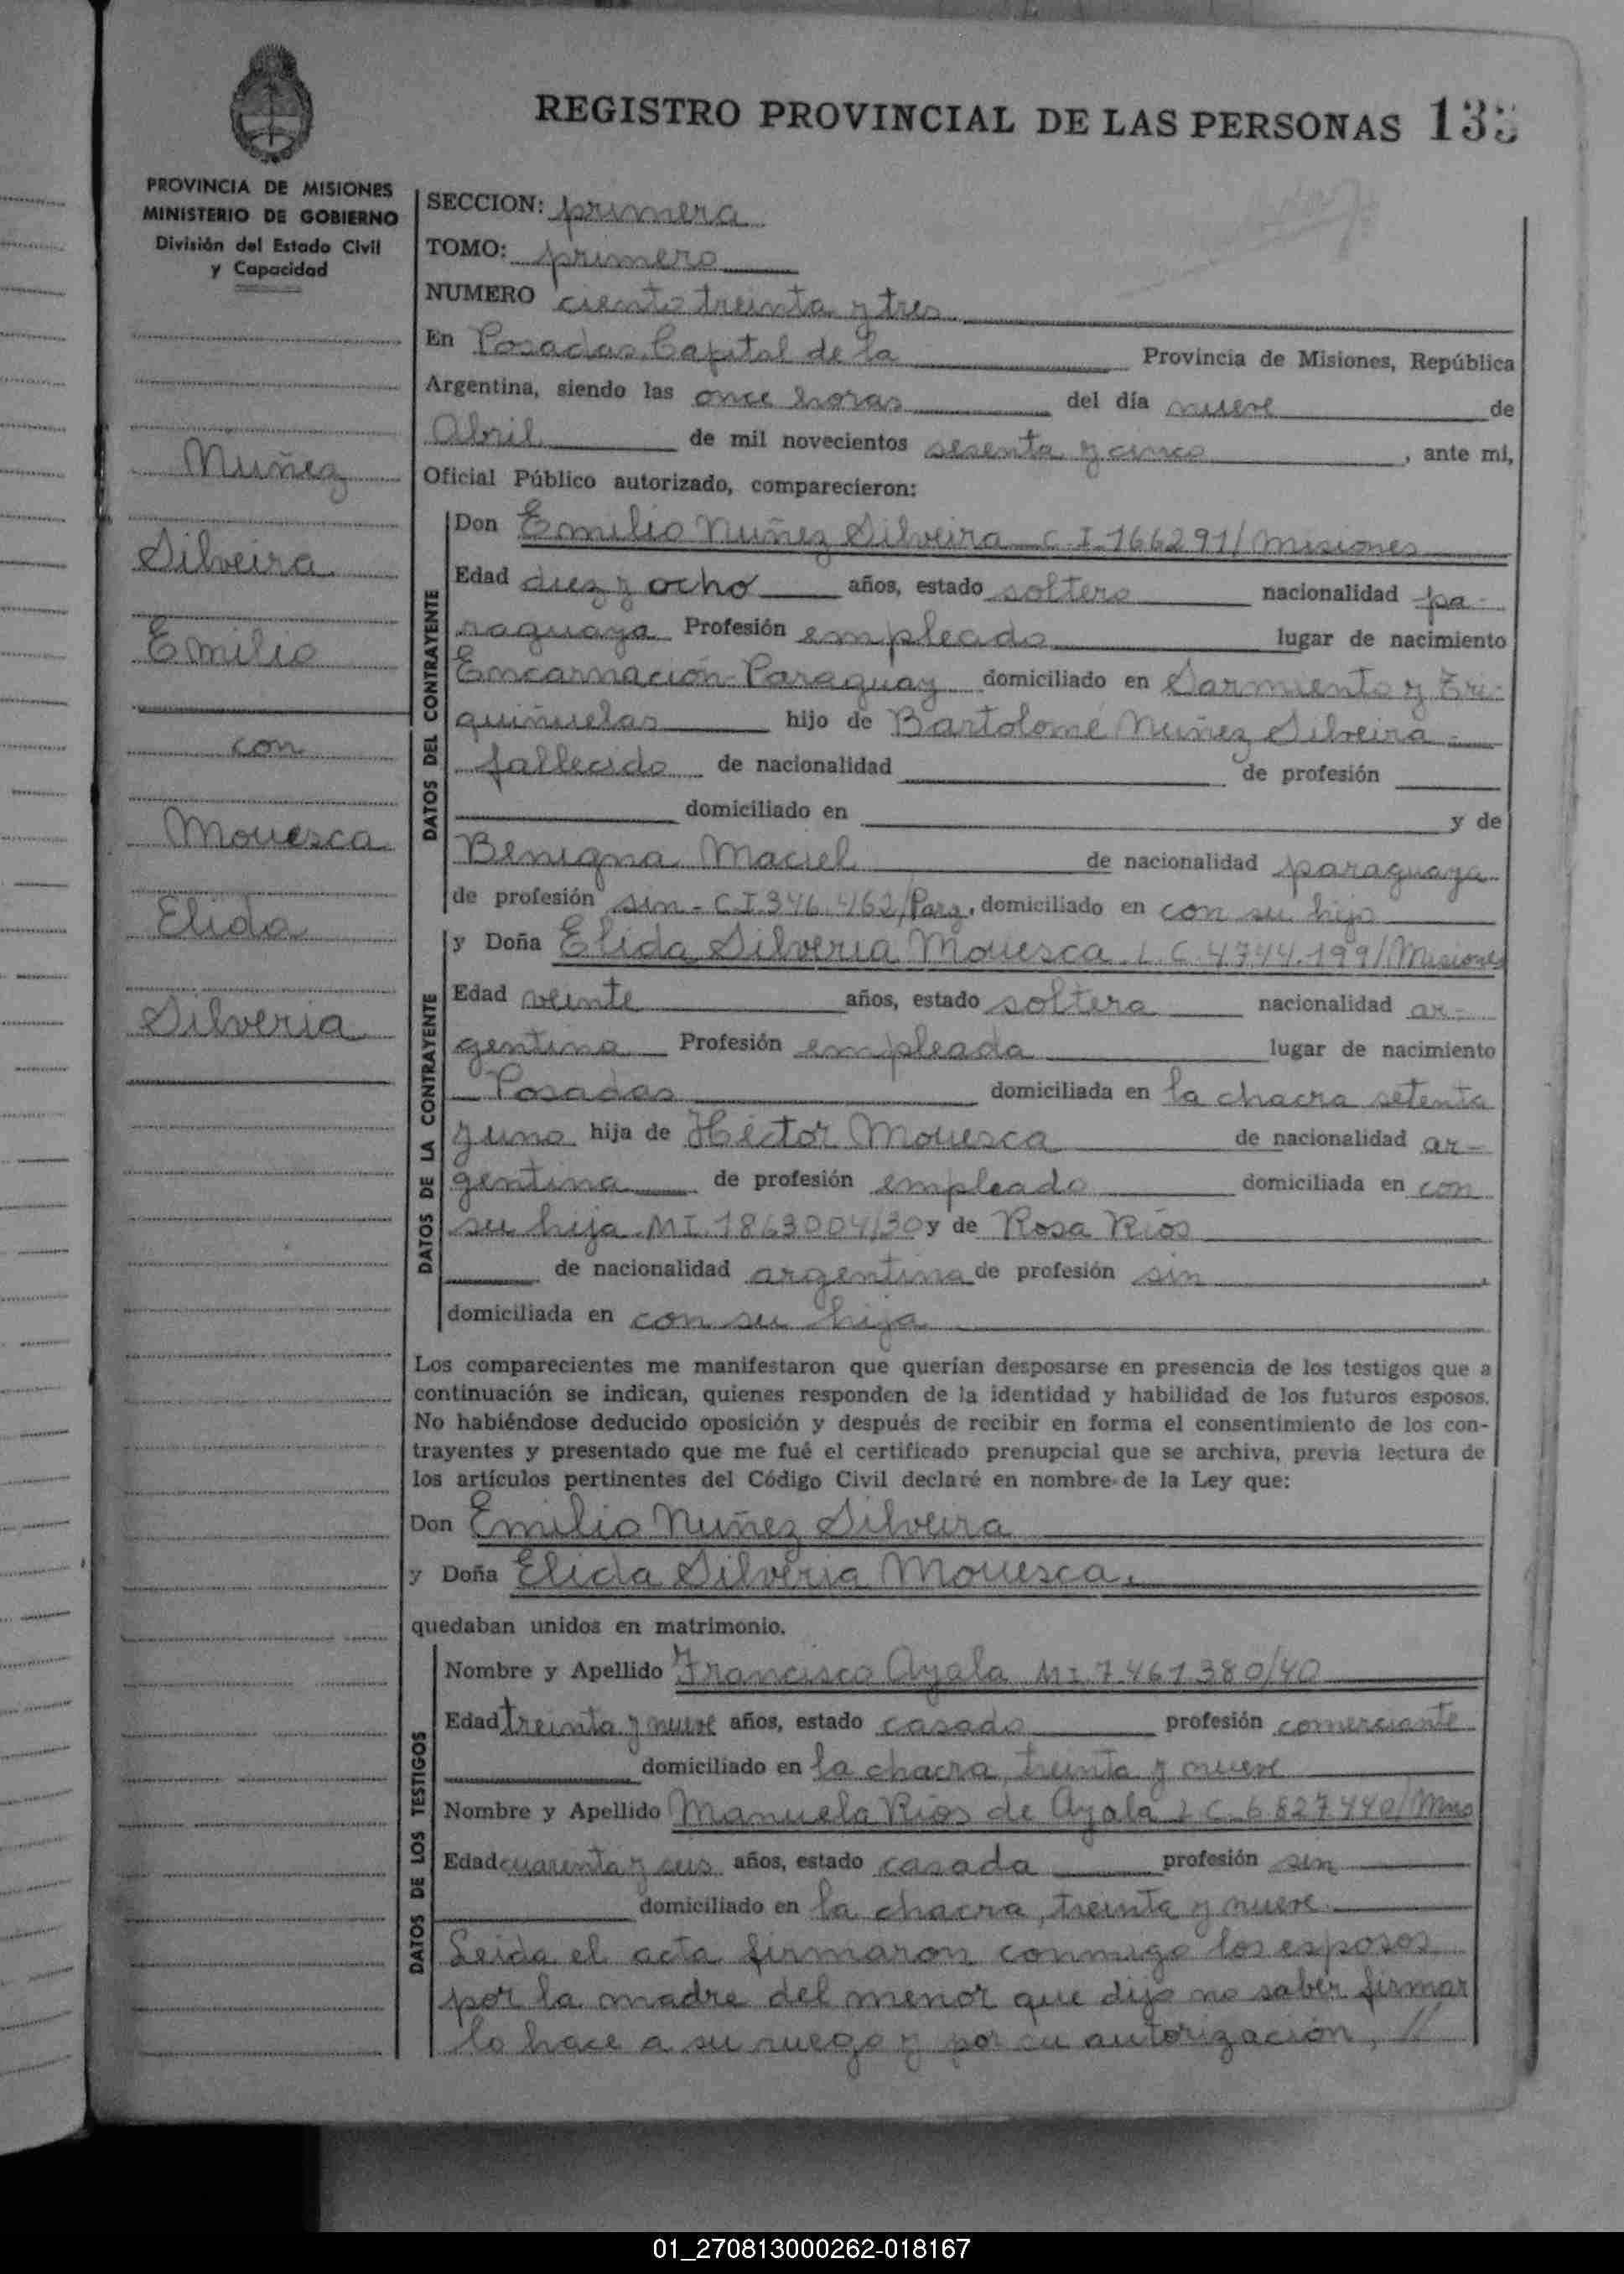 REGISTRO PROVINCIAL DE LAS PERSONAS
PROVINCIA DE MISIONES
MINISTERIO DE GOBIERNO
División del Estado Civil
y Capacidad
Nuñez
Silveira
Emilio
con
Mouesca
Elida
Silveria
SECCION: primera
TOMO: primero
NUMERO ciento treinta y tres
En Posadas, Capital de la Provincia de Misiones, República
Argentina, siendo las once horas del día nueve de
Abril de mil novecientos sesenta y cinco, ante mi,
Oficial Público autorizado, comparecieron:
DATOS DEL CONTRAYENTE
Don Emilio Nuñez Silveira C.I. 166291/Misiones
Edad diez y ocho años, estado soltero nacionalidad pa-
raguaya Profesión empleado lugar de nacimiento
Encarnación-Paraguay domiciliado en Sarmiento y
quiñuelas hijo de Bartolomé Nuñez Silveira
fallecido de nacionalidad de profesión
domiciliado en y de
Benigna Maciel de nacionalidad paraguaya
de profesión sin - C.I. 346.462/Parg, domiciliado en con su hijo
DATOS DE LA CONTRAYENTE
y Doña Elida Silveria Mouesca L.C. 4744.199/Misiones
Edad veinte años, estado soltera nacionalidad ar-
gentina Profesión empleada lugar de nacimiento
Posadas domiciliada en la chacra setenta
y uno hija de Héctor Mouesca de nacionalidad ar-
gentina de profesión empleado domiciliada en con
su hija MI. 1863004/30 y de Rosa Rios
de nacionalidad argentina de profesión sin
domiciliada en con su hija
Los comparecientes me manifestaron que querían desposarse en presencia de los testigos que a
continuación se indican, quienes responden de la identidad y habilidad de los futuros esposos.
No habiéndose deducido oposición y después de recibir en forma el consentimiento de los con-
trayentes y presentado que me fué el certificado prenupcial que se archiva, previa lectura de
los artículos pertinentes del Código Civil declaré en nombre de la Ley que:
Don Emilio Nuñez Silveira
y Doña Elida Silveria Mouesca.
quedaban unidos en matrimonio.
DATOS DE LOS TESTIGOS
Nombre y Apellido Francisco Ayala MI. 7.461.380/40
Edad treinta y nueve años, estado casado profesión comerciante
domiciliado en la chacra treinta y nueve
Nombre y Apellido Manuela Rios de Ayala L.C. 6.827.440/Mnes
Edad cuarenta y seis años, estado casada profesión sin
domiciliado en la chacra, treinta y nueve
Leida el acta firmaron conmigo los esposos
por la madre del menor que dijo no saber firmar
lo hace a su ruego y por su autorización, //
01_270813000262-018167